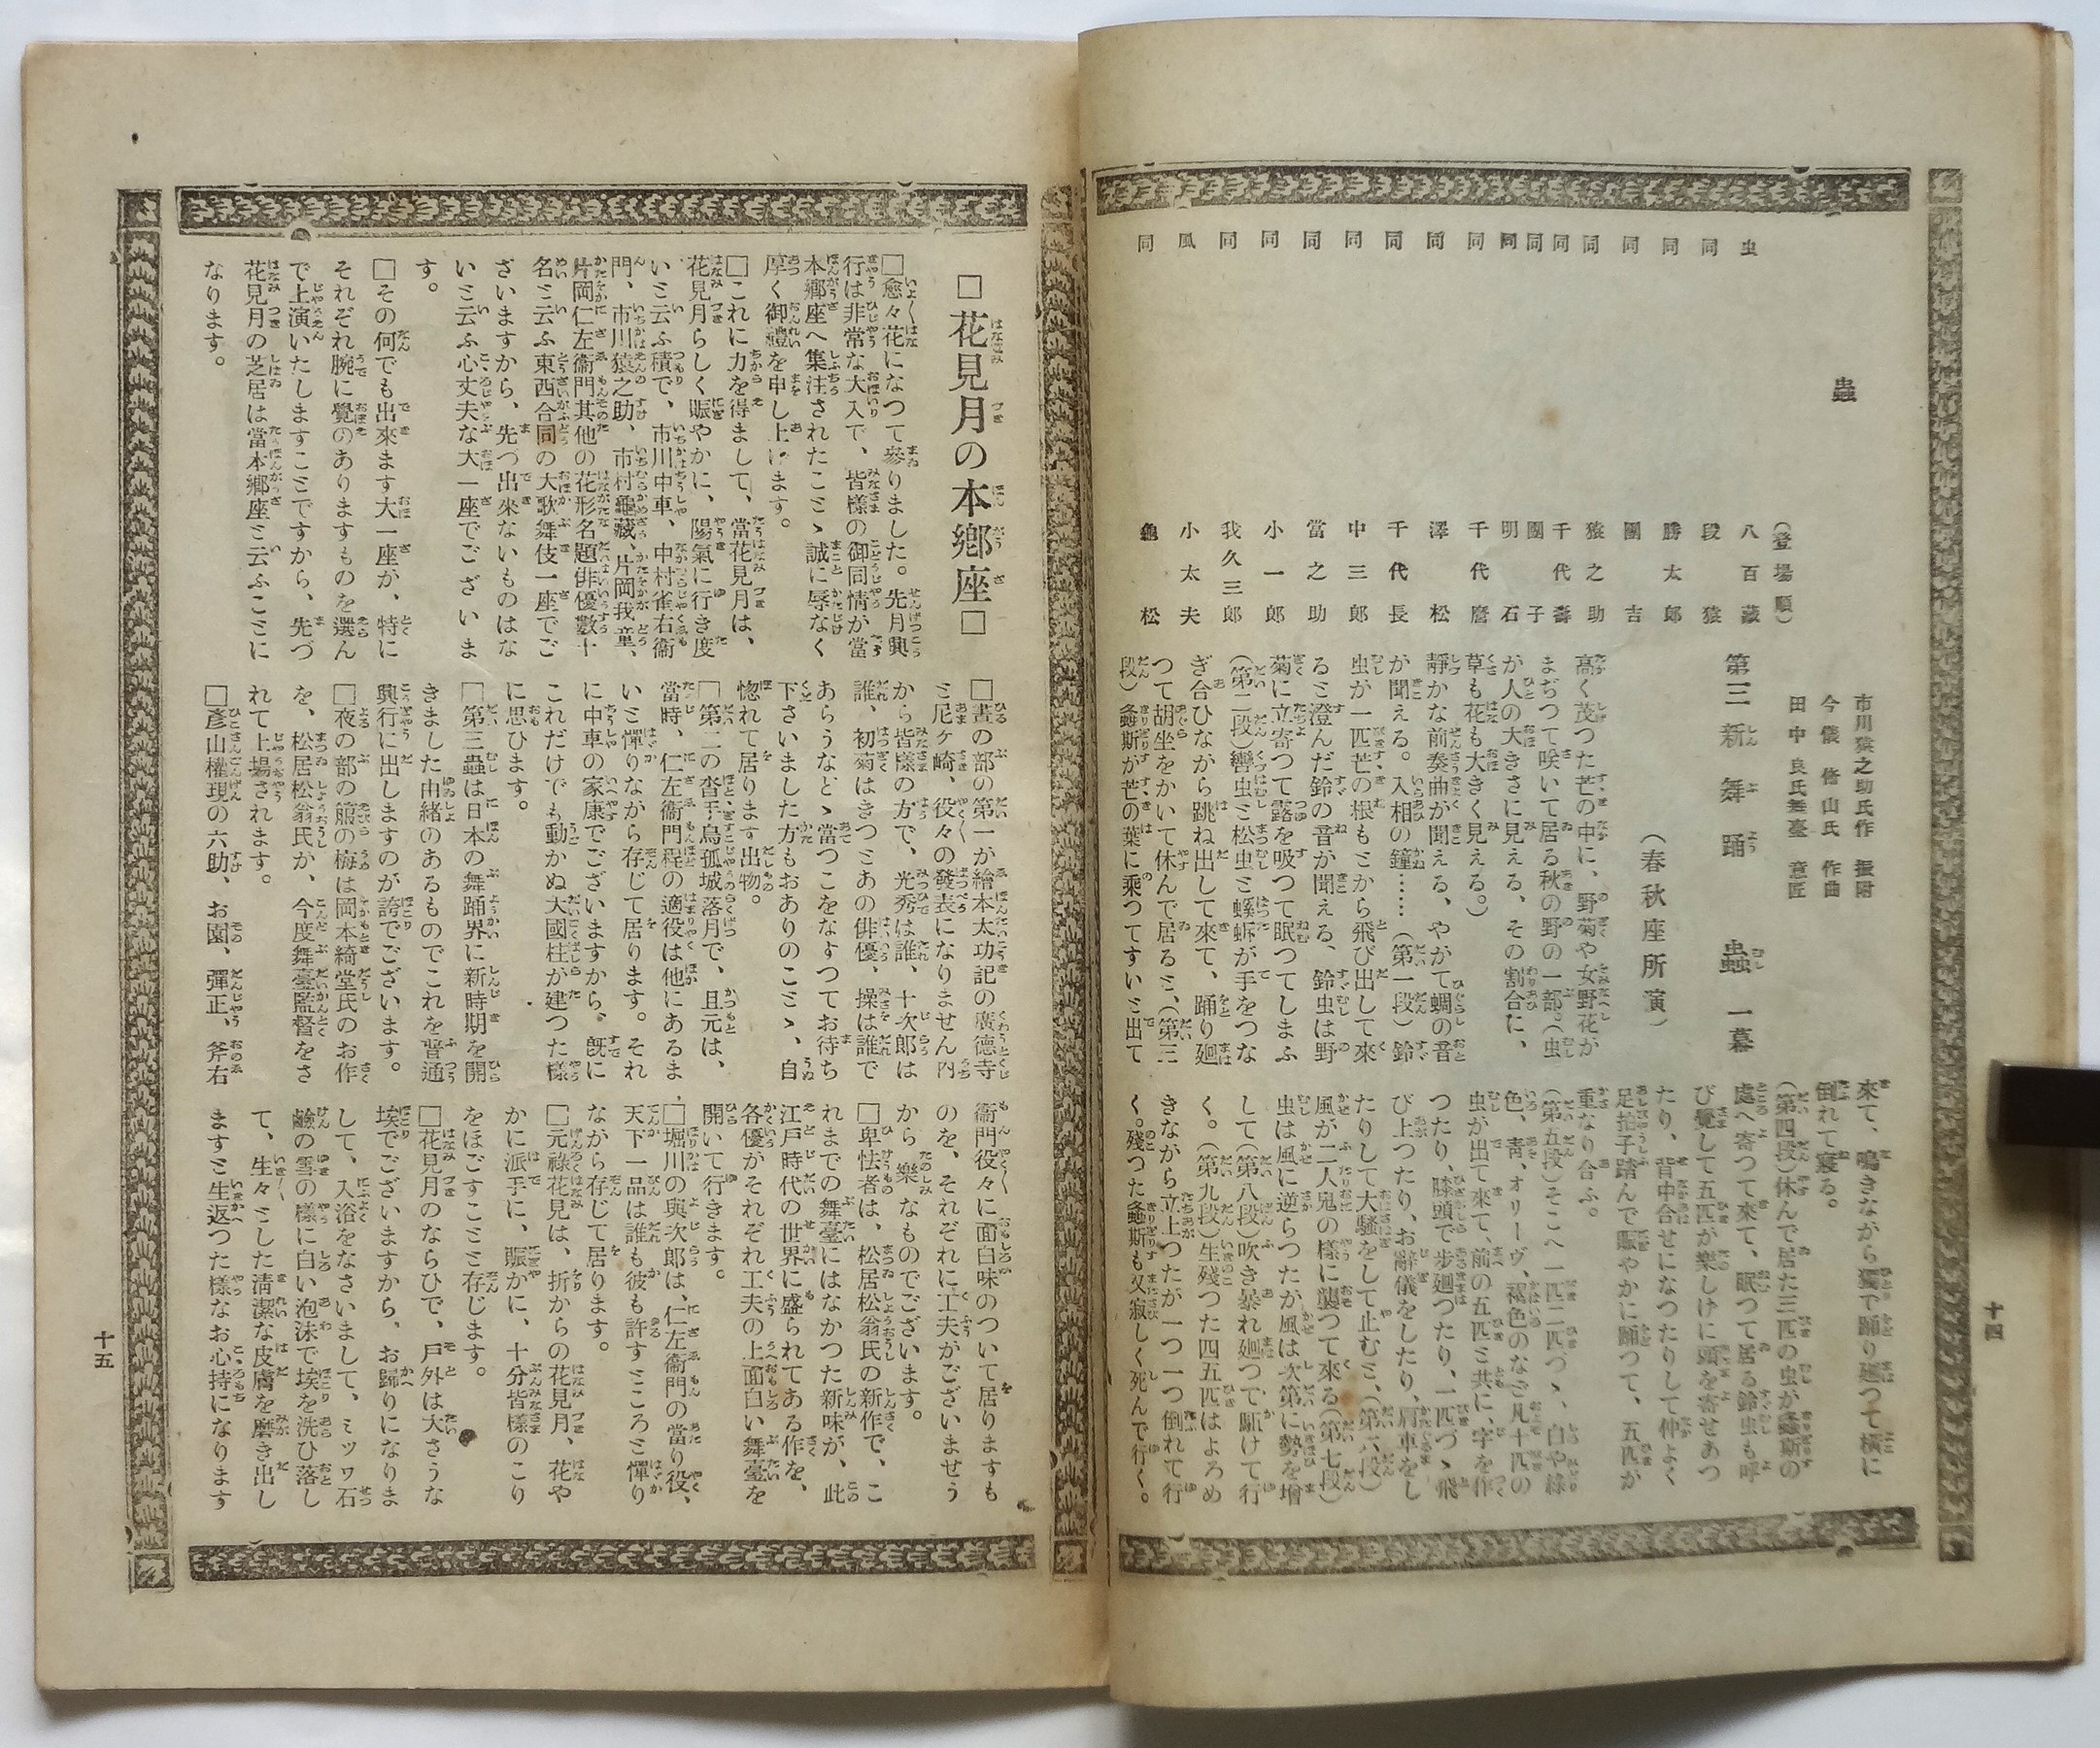 蟲
(登場順)
虫 八百藏
同 段猿
同 勝太郎
同 團吉
同 猿之助
同 千代壽
同 團子
同 明石
同 千代麿
同 澤松
同 千代長
同 中三郎
同 當之助
同 小一郎
同 我久三郎
風 小太夫
同 龜松
市川猿之助氏作 振附
今儀 脩山氏 作曲
田中 良氏舞臺 意匠
第三 新舞踊 蟲 一幕
(春秋座所演)
高く茂つた芒の中に、野菊や女野花が
まぢつて咲いて居る秋の野の一部。(虫
が人の大きさに見える、その割合に、
草も花も大きく見える。)
靜かな前奏曲が聞える、やがて蜩の音
が聞える。入相の鐘……(第一段)鈴
虫が一匹芒の根もとから飛び出して來
ると澄んだ鈴の音が聞える、鈴虫は野
菊に立寄つて露を吸つて眠つてしまふ
(第二段)轡虫と松虫と螇蚸が手をつな
ぎ合ひながら跳ね出して來て、踊り廻
つて胡坐をかいて休んで居ると、(第三
段)螽斯が芒の葉に乘つてすいと出て
來て、鳴きながら獨で踊り廻つて横に
倒れて寢る。
(第四段)休んで居た三匹の虫が螽斯の
處へ寄つて來て、眠つて居る鈴虫も呼
び覺して五匹が樂しげに頭を寄せあつ
たり、背中合せになつたりして仲よく
足拍子踏んで賑やかに踊つて、五匹が
重なり合ふ。
(第五段)そこへ一匹二匹づゝ、白や綠
色、靑、オリーヴ、褐色のなど凡十匹の
虫が出て來て、前の五匹と共に、字を作
つたり、膝頭で步廻つたり、一匹づゝ飛
び上つたり、お辭儀をしたり、肩車をし
たりして大騷をして止むと、(第六段)
風が二人鬼の樣に襲つて來る(第七段)
虫は風に逆らつたが風は次第に勢を增
して(第八段)吹き暴れ廻つて願けて行
く。(第九段)生殘つた四五匹はよろめ
きながら立上つたが一つ一つ倒れて行
く。殘つた螽斯も又寂しく死んで行く。
十四
□花見月の本鄕座□
□愈々花になつて參りました。先月興
行は非常な大入で、皆樣の御同情が當
本鄕座へ集注されたことゝ誠に辱なく
厚く御禮を申し上げます。
□これに力を得まして、當花見月は、
花見月らしく賑やかに、陽氣に行き度
いと云ふ積で、市川中車、中村雀右衞
門、市川猿之助、市村龜藏、片岡我童、
片岡仁左衞門其他の花形名題俳優數十
名と云ふ東西合同の大歌舞伎一座でご
ざいますから、先づ出來ないものはな
いと云ふ心丈夫な大一座でございま
す。
□その何でも出來ます大一座が、特に
それぞれ腕に覺のありますものを選ん
で上演いたしますことですから、先づ
花見月の芝居は當本鄕座と云ふことに
なります。
□晝の部の第一が繪本太功記の廣德寺
と尼ヶ崎、役々の發表になりません內
から皆樣の方で、光秀は誰、十次郎は
誰、初菊はきつとあの俳優、操は誰で
あらうなどゝ當つこをなすつてお待ち
下さいました方もおありのことゝ、自
惚れて居ります出物。
□第二の沓手鳥孤城落月で、且元は、
當時、仁左衞門程の適役は他にあるま
いと憚りながら存じて居ります。それ
に中車の家康でございますから、旣に
これだけでも動かぬ大國柱が建つた樣
に思ひます。
□第三蟲は日本の舞踊界に新時期を開
きました由緖のあるものでこれを普通
興行に出しますのが誇でございます。
□夜の部の箙の梅は岡本綺堂氏のお作
を、松居松翁氏が、今度舞臺監督をさ
れて上場されます。
□彥山權現の六助、お園、彈正、斧右
衞門役々に面白味のついて居りますも
のを、それぞれに工夫がございませう
から樂なものでございます。
□卑怯者は、松居松翁氏の新作で、こ
れまでの舞臺にはなかつた新味が、此
江戶時代の世界に盛られてある作を、
各優がそれぞれ工夫の上面白い舞臺を
開いて行きます。
□堀川の與次郎は、仁左衞門の當り役、
天下一品は誰も彼も許すところと憚り
ながら存じて居ります。
□元祿花見は、折からの花見月、花や
かに派手に、賑かに、十分皆樣のこり
をほごすことと存じます。
□花見月のならひで、戶外は大さうな
埃でございますから、お歸りになりま
して、入浴をなさいまして、ミツワ石
鹼の雪の樣に白い泡沫で埃を洗ひ落し
て、生々とした淸潔な皮膚を磨き出し
ますと生返つた樣なお心持になります
十五